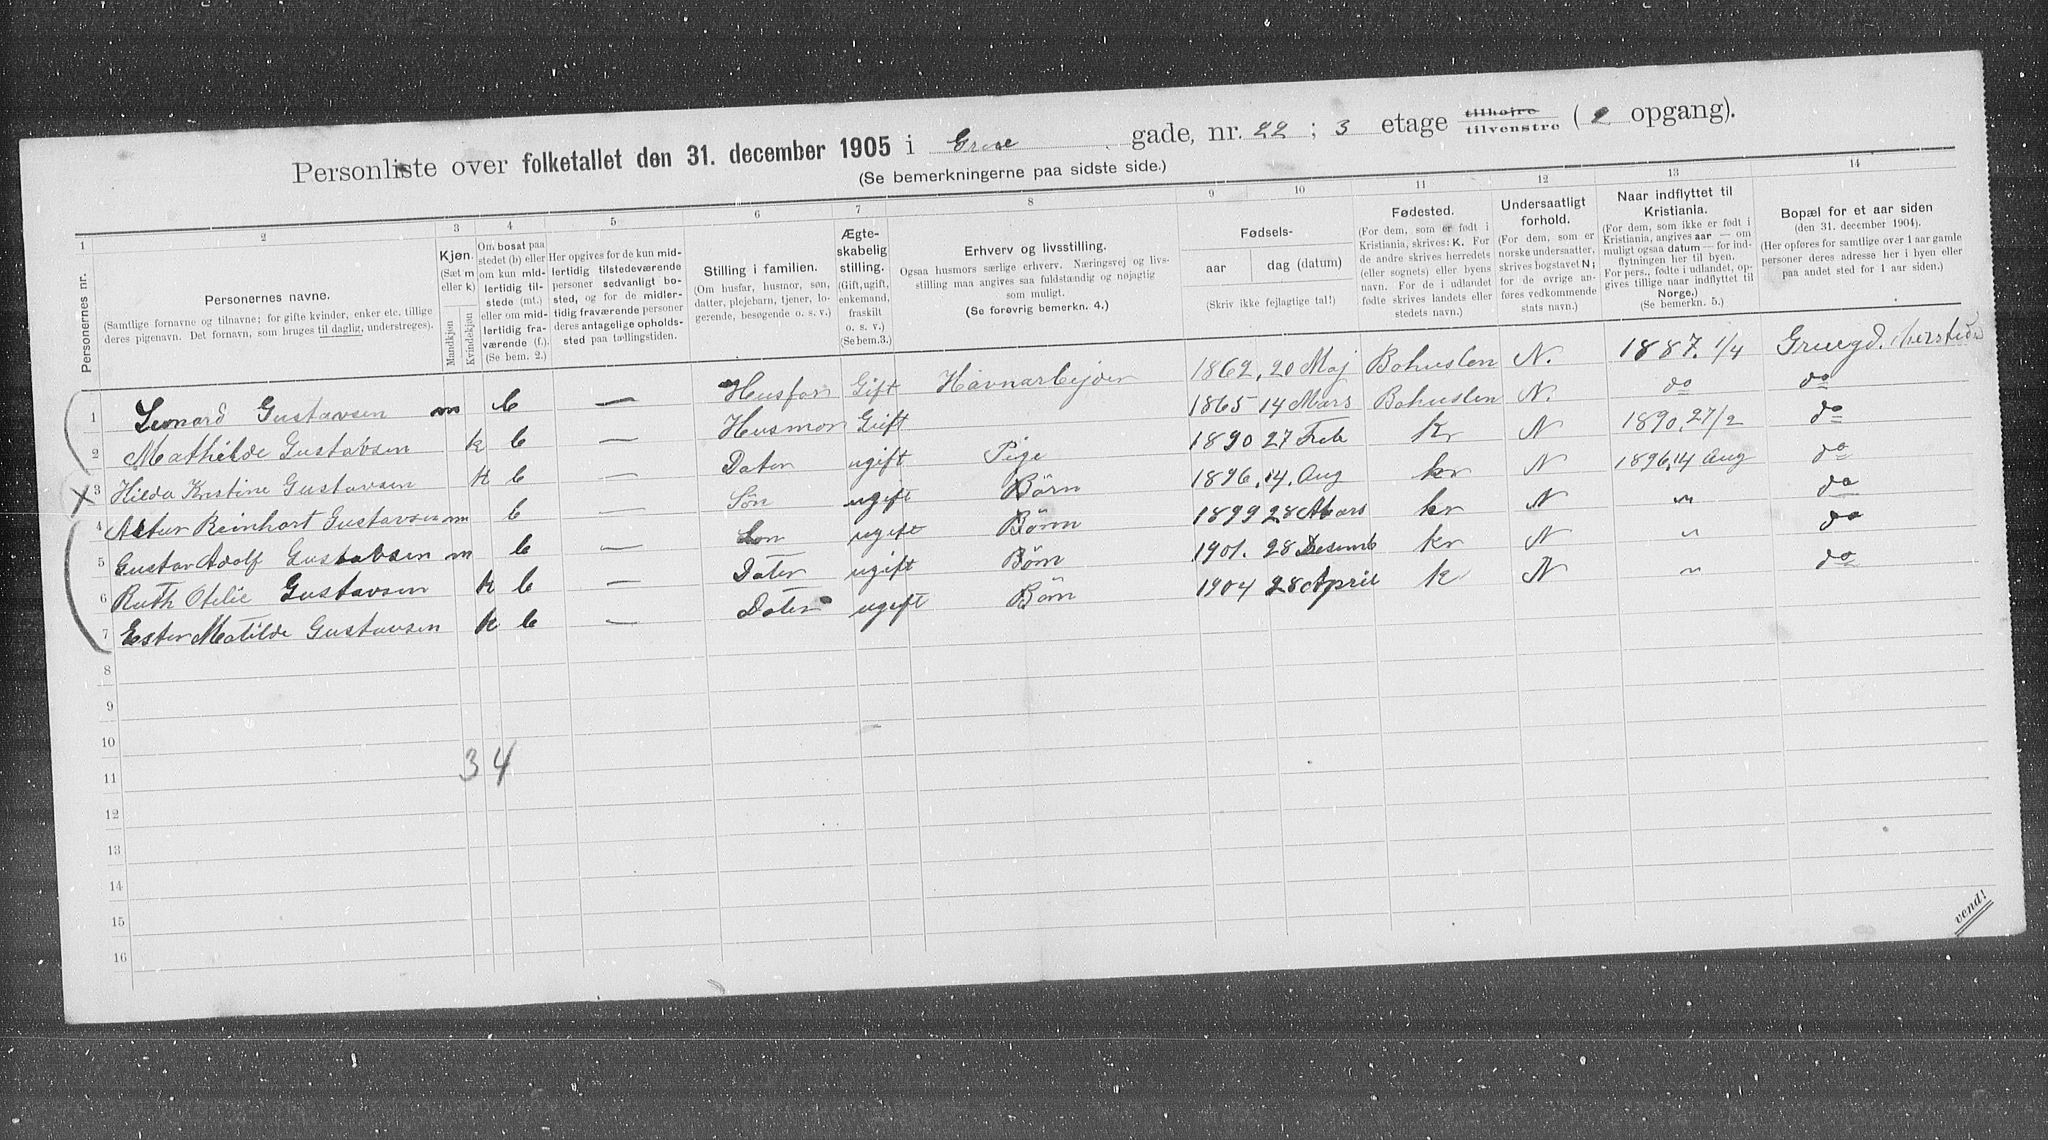 Personliste over folketallet den 31. december 1905 i gade, nr. 22 ; 3 etage tilhøjre tilvenstre (2 opgang).
(Se bemerkningerne paa sidste side.)
1 2 3 4 5 6 7 8 9 10 11 12 13 14
Personernes nr.
Personernes navne.
(Samtlige fornavne og tilnavne; for gifte kvinder, enker etc. tillige
deres pigenavn. Det fornavn, som bruges til daglig, understreges).
Kjøn.
(Sæt m
eller k)
Mandkjøn
Kvindekjøn
Om bosat paa
stedet (b) eller
om kun mid-
lertidig til-
stede (mt.)
eller om mid-
lertidig fra-
værende (f.).
(Se bem. 2.)
Her opgives for de kun mid-
lertidig tilstedeværende
personer sedvanligt bo-
sted, og for de midler-
tidig fraværende personer
deres antagelige opholds-
sted paa tællingstiden.
Stilling i familien.
(Om husfar, husmor, søn,
datter, plejebarn, tjener, lo-
gerende, besøgende o. s. v.)
Ægte-
skabelig
stilling.
(Gift, ugift,
enkemand,
fraskilt
o. s. v.)
(Se bem. 3.)
Erhverv og livsstilling.
Ogsaa husmors særlige erhverv. Næringsvej og livs-
stilling maa angives saa fuldstændig og nøjagtig
som muligt.
(Se forøvrig bemerkn. 4.)
Fødsels-
aar dag (datum)
(Skriv ikke fejlagtige tal!)
Fødested.
(For dem, som er født i
Kristiania, skrives: K. For
de andre skrives herredets
(eller sognets) eller byens
navn. For de i udlandet
fødte skrives landets eller
stedets navn.)
Undersaatligt
forhold.
(For dem, som er
norske undersaatter,
skrives bogstavet N;
for de øvrige an-
føres vedkommende
stats navn.)
Naar indflyttet til
Kristiania.
(For dem, som ikke er født i
Kristiania, angives aar — om
muligt ogsaa datum — for ind-
flytningen her til byen.
For pers., fødte i udlandet, op-
gives tillige naar indflyttet til
Norge.)
(Se bemerkn. 5.)
Bopæl for et aar siden
(den 31. december 1904).
(Her opføres for samtlige over 1 aar gamle
personer deres adresse her i byen eller
paa andet sted for 1 aar siden.)
1 Leonard Gustavsen m b — Husfar Gift Havnarbejder 1862. 20 Maj Bohuslen N. 1887. 1/4
2 Mathilde Gustavsen k b — Husmor Gift 1865 14 Mars Bohuslen N. do do
X 3 Hilda Kristine Gustavsen k b — Dater ugift Pige 1890 27 Feb Kr N 1890. 27/2 do
4 Reinhart Gustavsen m b — Søn ugift Børn 1896. 14. Aug kr N 1896. 14 Aug do
5 Gustav Adolf Gustavsen m b — Søn ugift Børn 1899 28 Mars kr N " do
6 Ruth Otilie Gustavsen k b — Dater ugift Børn 1901. 28 Desemb kr N " do
7 Ester Matilde Gustavsen k b — Dater ugift Børn 1904 28 April k N " do
8
9
10
11 3 4
12
13
14
15
16
vend!